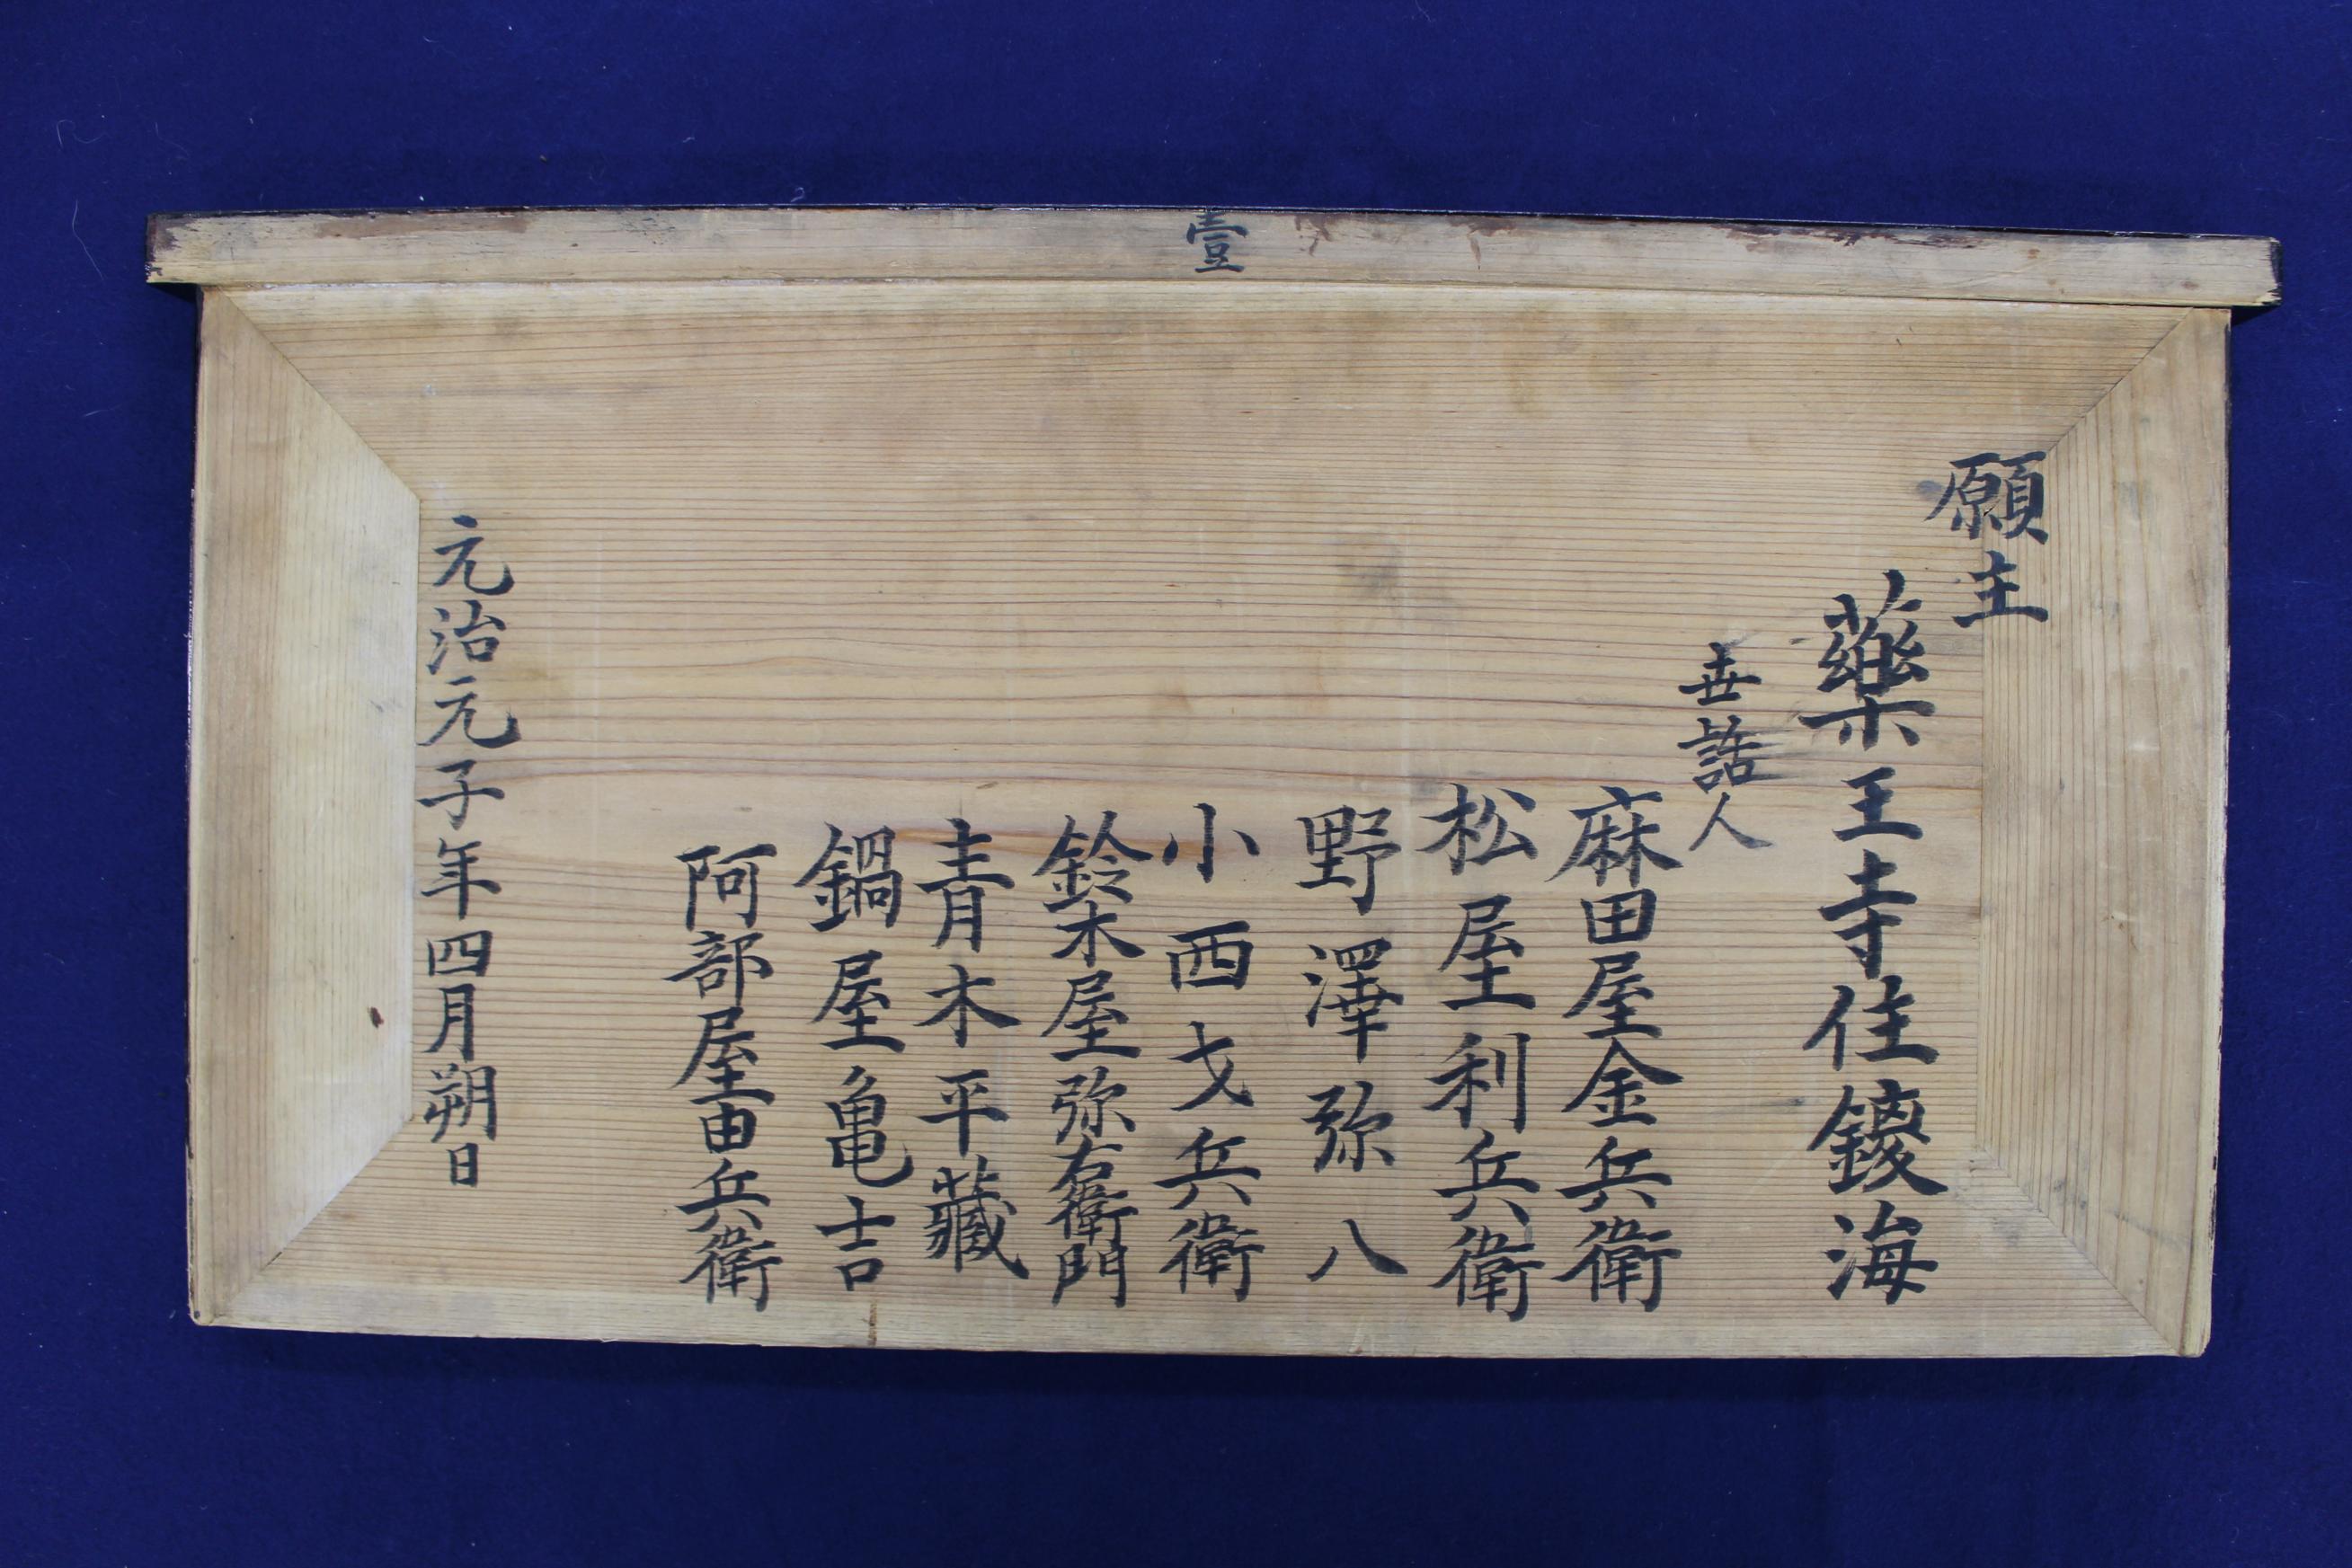 壹
願主
藥王寺住鑁海
世話人
麻田屋金兵衛
松屋利兵衛
野澤弥八
小西戈兵衛
鈴木屋弥右衛門
青木平藏
鍋屋亀吉
阿部屋由兵衛
元治元子年四月朔日